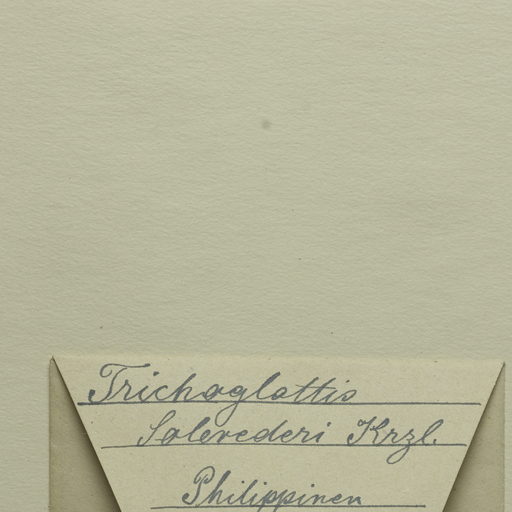 Trichoglottis
Solerederi Krzl.
Philippinen